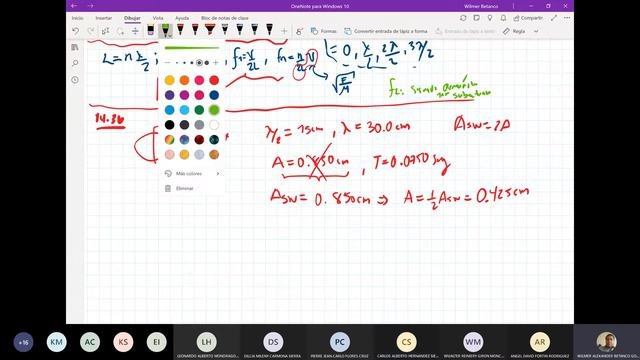 OneNote para Windows 10
Wilmer Betanco
Inicio Insertar Dibujar Vista Ayuda Bloc de notas de clase
Convertir entrada de lápiz a forma
L = n λ/2 ;
f₁ = v/2L , fn = n/2L v
L = 0, λ/2, 2λ/2, 3λ/2
√F/μ
14.36
λ/2 = 15cm , λ = 30.0cm
Asw = 2A
A = 0.850cm , T = 0.0750 seg
Asw = 0.850cm ⇒ A = 1/2 Asw = 0.425cm
Más colores
Eliminar
+16
KM
AC
KS
EI
LH
DS
PC
CS
WM
AR
LEONARDO ALBERTO MONDRAGO...
DILCIA MILENY CARMONA SIERRA
PIERRE JEAN CARLO FLORES CRUZ
CARLOS ALBERTO HERNANDEZ SIE...
WALTER REINIERY GIRON MONC...
ANGEL DAVID FORTIN RODRIGUEZ
WILMER ALEXANDER BETANCO SO...